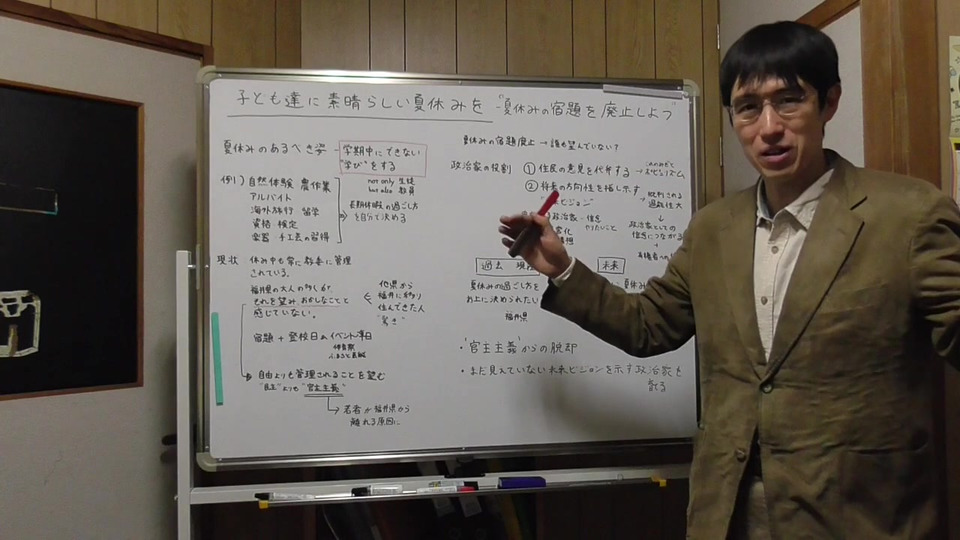 子ども達に素晴らしい夏休みを -"夏休みの宿題を廃止しよう
夏休みのあるべき姿 - 学期中にできない
"学び"をする
例) 自然体験 農作業
アルバイト
海外旅行 留学
資格・検定
楽器・手工芸の習得
not only 生徒
but also 教員
長期休暇の過ごし方
を自分で決める
現状 休み中も常に教委に管理
されている。
福井県の大人の多くが、
それを望み、おかしなことと
感じていない。
他県から
福井に移り
住んできた人
"驚き"
宿題 + 登校日 イベント準備
体育祭
自由よりも管理されることを望む
"自主"よりも"官主主義"
若者が福井県から
離れる原因に
夏休みの宿題廃止 → 誰も望んでいない?
政治家の役割 ① 住民の意見を代弁する →
② 将来の方向性を指し示す
ビジョン"
→ 批判される
可能性大
政治家・信念
やりたいこと
変化
政治家としての
信念につながる
有権者への
過去 現在
未来
夏休みの過ごし方を
お上に決められたい
福井県
夏休み
・"官主主義"からの脱却
・まだ見えていない未来ビジョンを示す政治家を